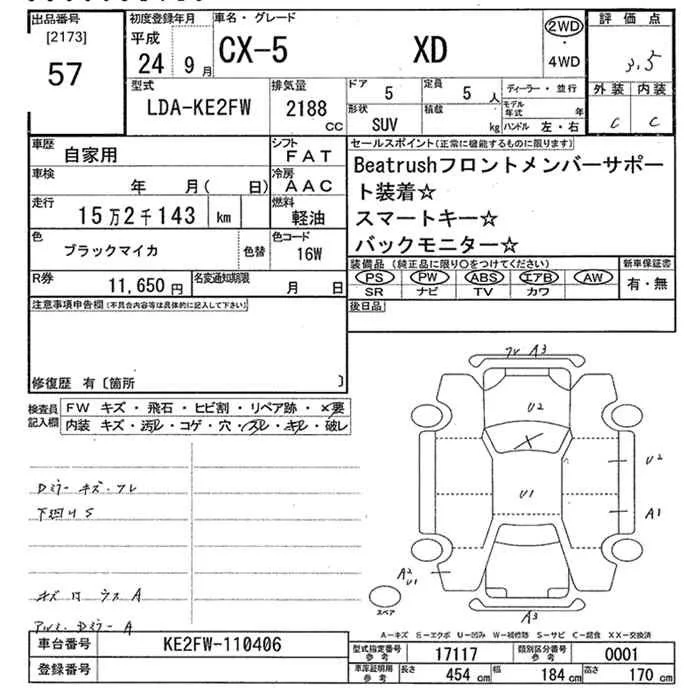 出品番号
[2173]
57
初度登録年月
平成
24 9 月
車名・グレード
CX-5 XD
2WD
・
4WD
評価点
3.5
外装 内装
C C
型式
LDA-KE2FW
排気量
2188
CC
ドア
5
定員
5 人
形状
SUV
積載
kg
ディーラー・並行
モデル年式 年
ハンドル 左・右
車歴
自家用
シフト
FAT
車検
年 月( 日)
冷房
AAC
走行
15万2千143 km
燃料
軽油
色
ブラックマイカ
色替
色コード
16W
R券
11,650 円
名変通知期限
月 日
セールスポイント(正常に機能するものに限ります)
Beatrushフロントメンバーサポー
ト装着☆
スマートキー☆
バックモニター☆
装備品 (純正品に限り○をつけてください)
新車保証書
PS PW ABS エアB AW
SR ナビ TV カワ
有・無
後日品
注意事項申告欄(不具合内容等は具体的に記入して下さい)
修復歴 有〔箇所 〕
検査員
記入欄
FW キズ・飛石・ヒビ割・リペア跡・×要
内装 キズ・汚レ・コゲ・穴・スレ・キレ・破レ
Dミラー キズ・ワレ
下廻りS
キズ 凹 ウス A
Dミラー A
A3
U2
U2
U1
A1
A2
U1
スペア
A3
A-キズ E-エクボ U-凹み W-補修跡 S-サビ C-腐食 XX-交換済
車台番号
KE2FW-110406
登録番号
型式指定番号
参考
17117
類別区分番号
参考
0001
車庫証明用
参考
長さ 454 cm
幅 184 cm
高さ 170 cm